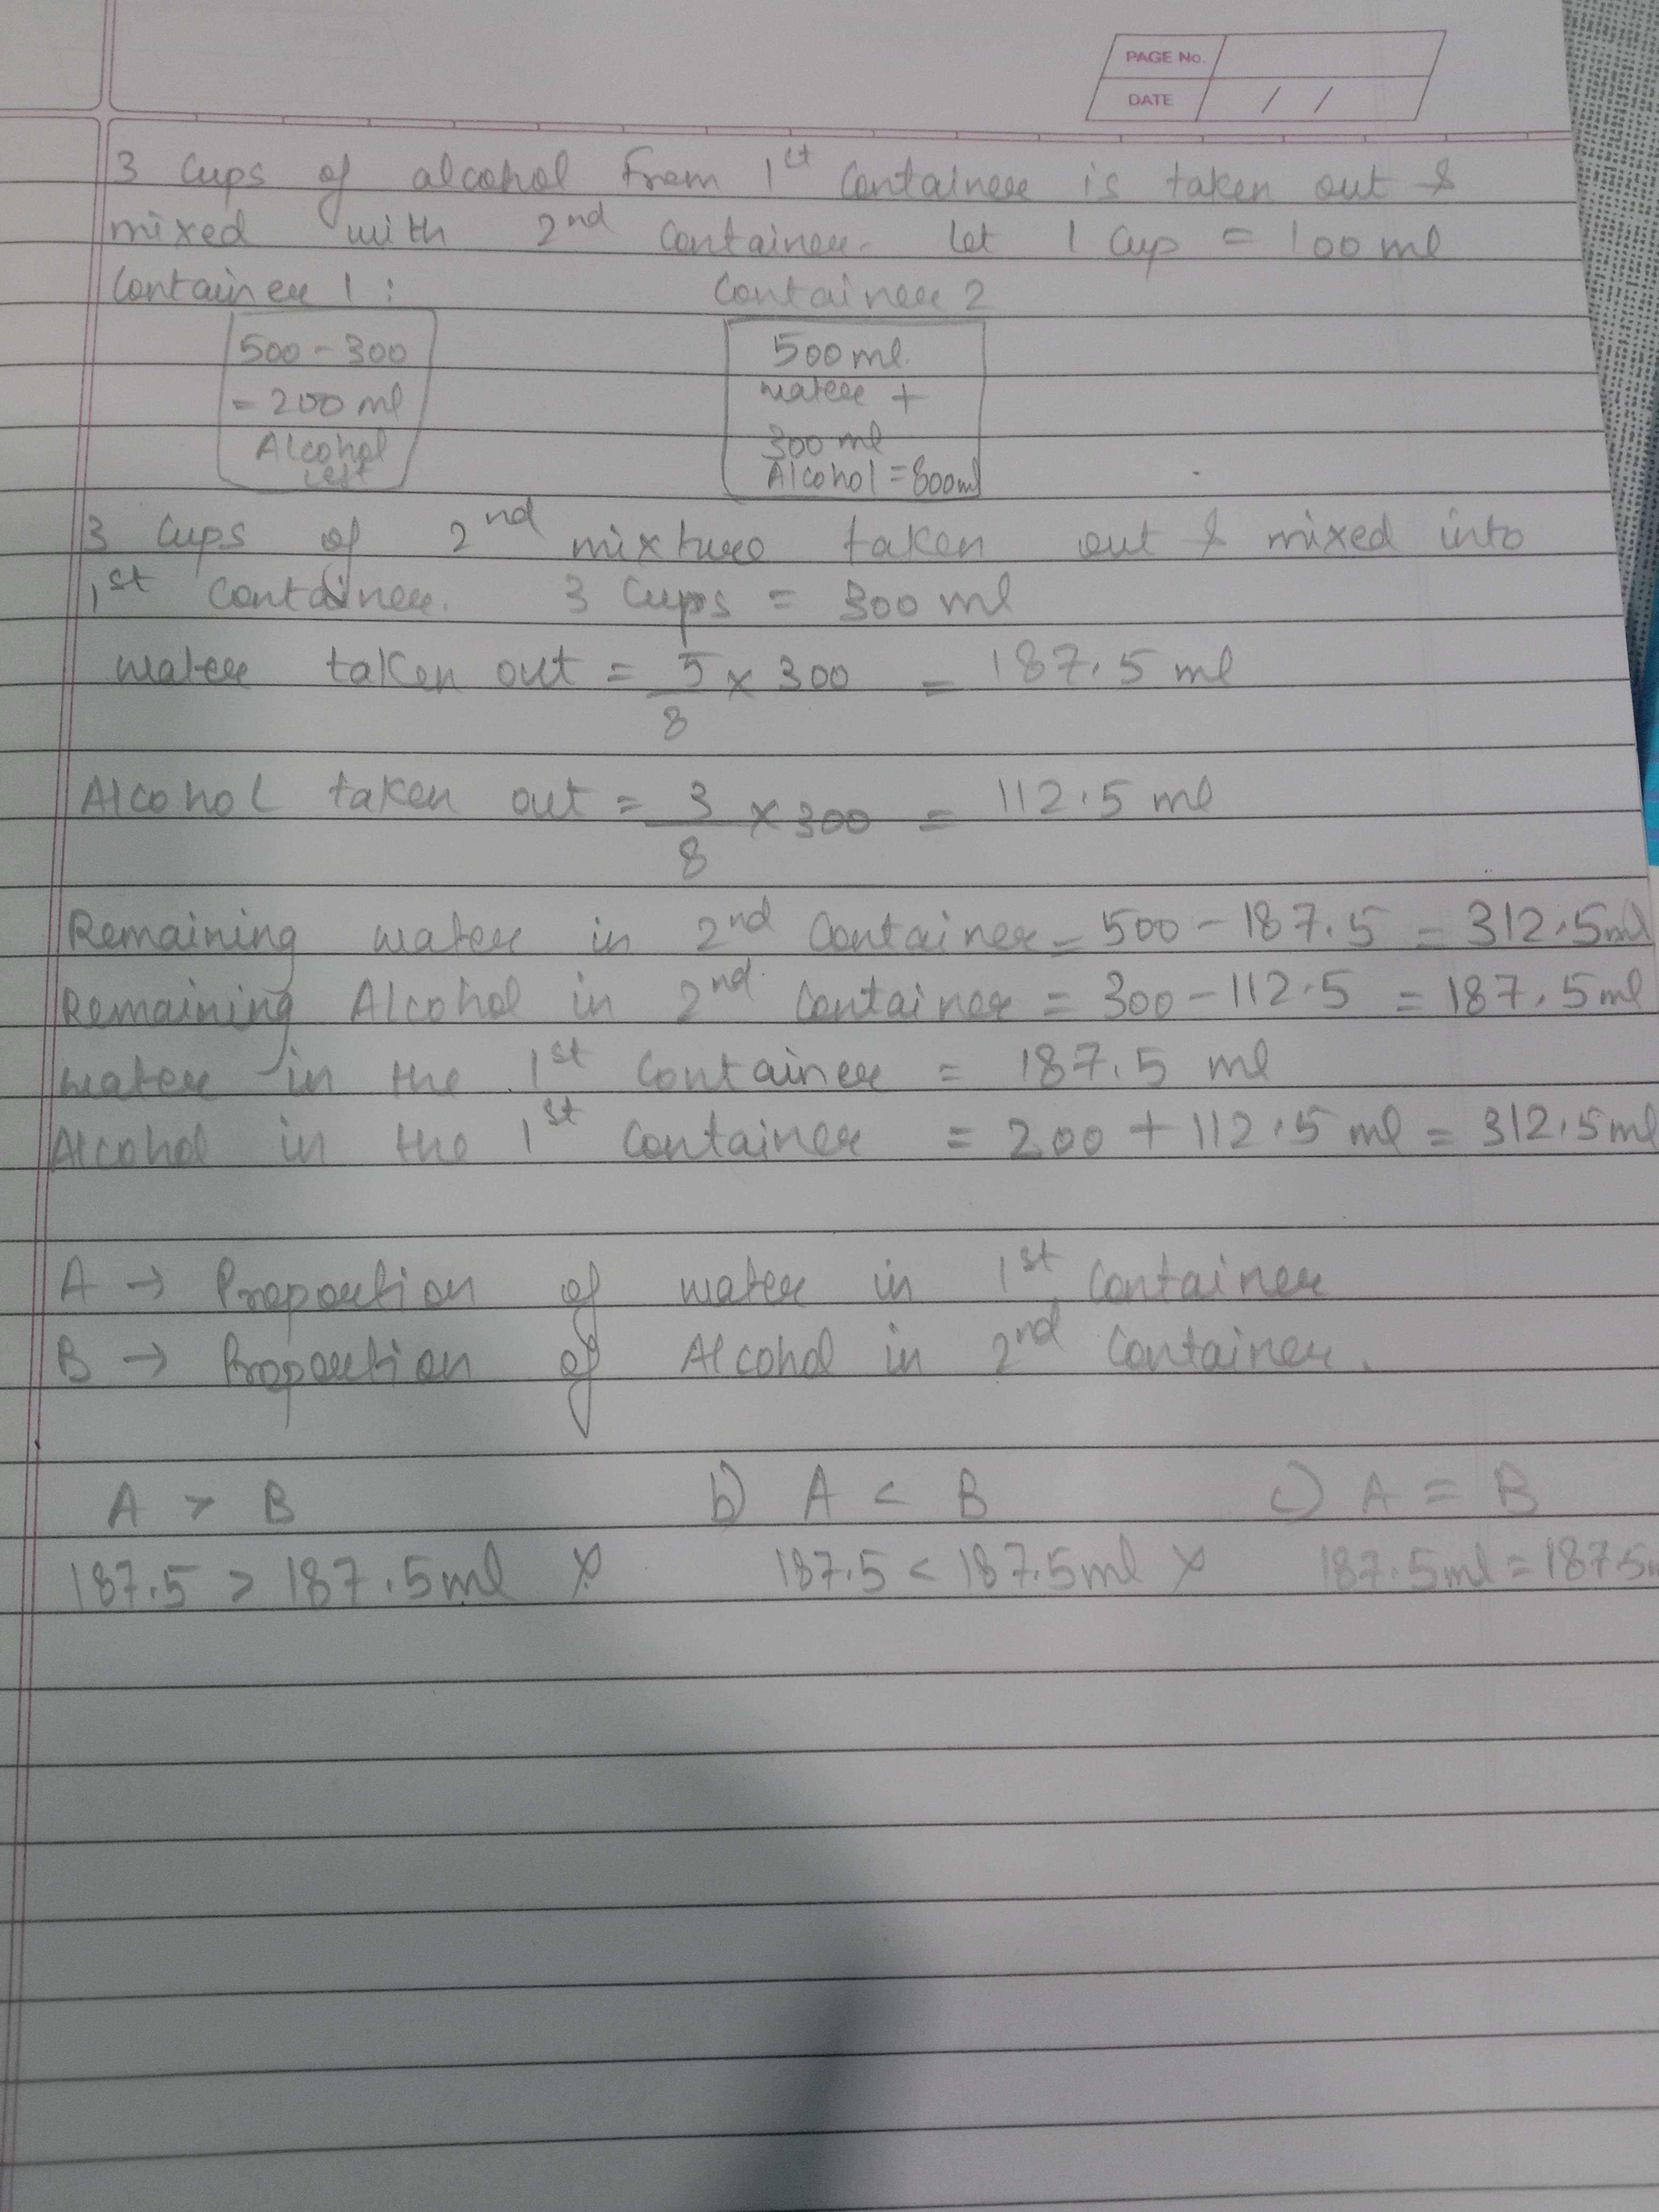 PAGE No.
DATE / /
3 Cups of alcohol from 1st Container is taken out &
mixed with 2nd Container. Let 1 Cup = 100 ml
Container 1 : Container 2
500 - 300
= 200 ml
Alcohol
Left
500 ml.
water +
300 ml
Alcohol = 800ml
3 Cups of 2nd mixture taken out & mixed into
1st Container. 3 Cups = 300 ml
water taken out = 5/8 x 300 = 187.5 ml
Alcohol taken out = 3/8 x 300 = 112.5 ml
Remaining water in 2nd Container = 500 - 187.5 = 312.5ml
Remaining Alcohol in 2nd Container = 300 - 112.5 = 187.5ml
water in the 1st Container = 187.5 ml
Alcohol in the 1st Container = 200 + 112.5 ml = 312.5ml
A → Proportion of water in 1st Container
B → Proportion of Alcohol in 2nd Container.
A > B b) A < B c) A = B
187.5 > 187.5ml x 187.5 < 187.5ml x 187.5ml = 187.5m